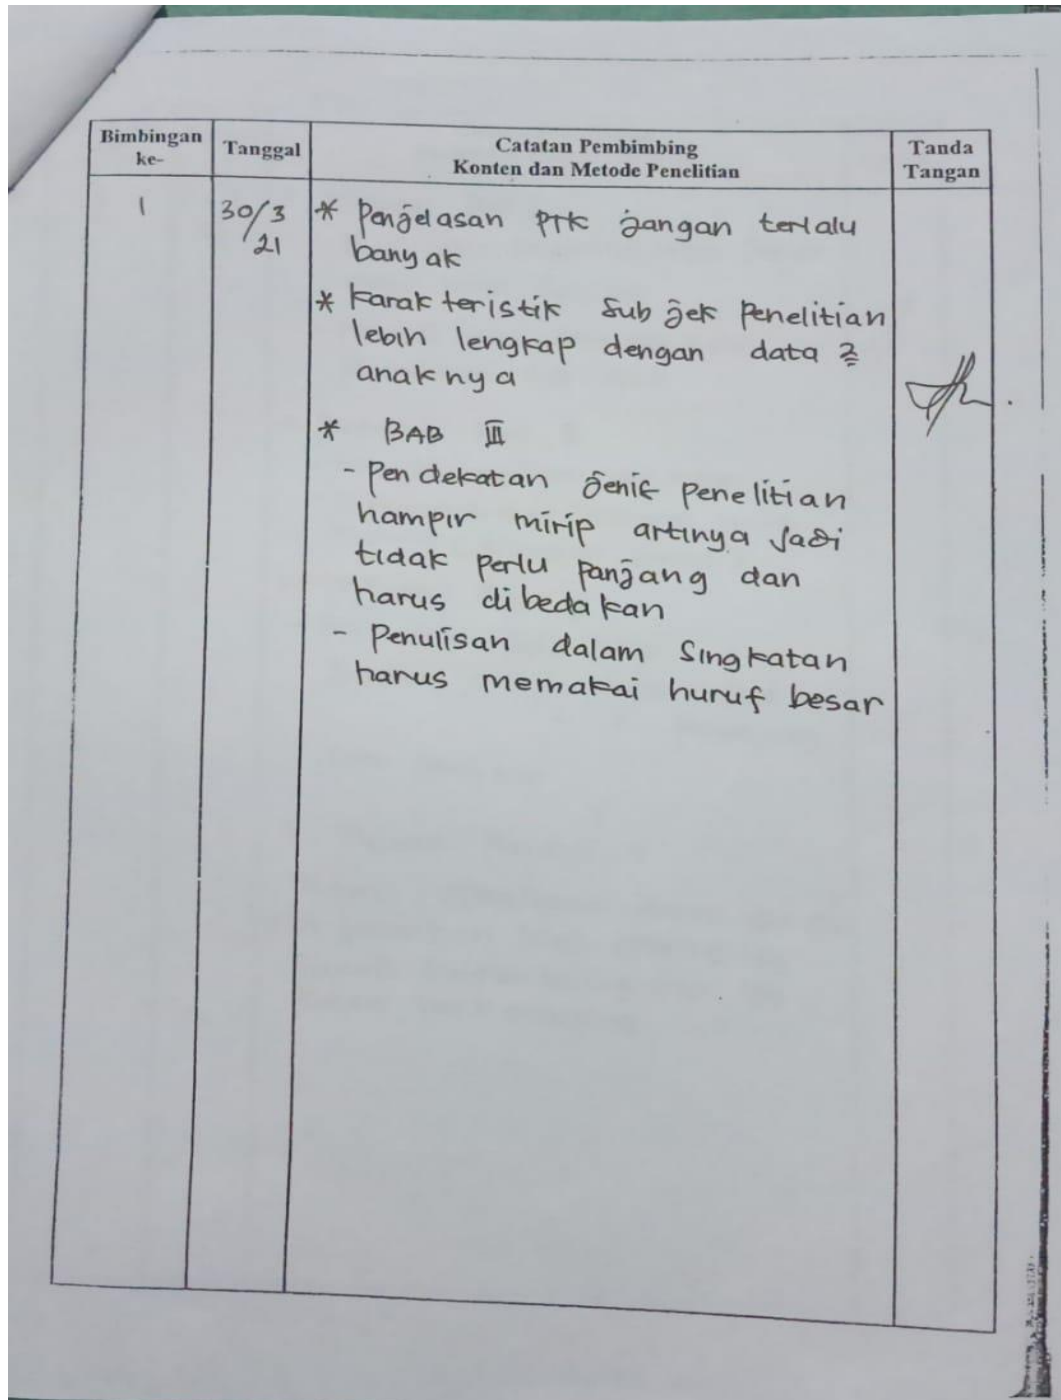 Bimbingan ke-
Tanggal
Catatan Pembimbing
Konten dan Metode Penelitian
Tanda Tangan
1
30/3
/21
* Penjelasan PTK jangan terlalu
banyak
* Karakteristik Subjek Penelitian
lebih lengkap dengan data 2
anaknya
* BAB III
- Pendekatan Jenis penelitian
hampir mirip artinya Jadi
tidak perlu panjang dan
harus dibedakan
- Penulisan dalam Singkatan
harus memakai huruf besar